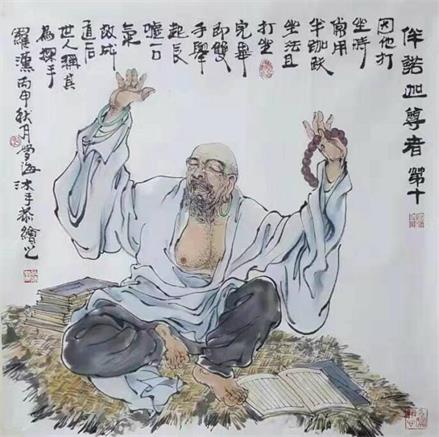 伴諾迦尊者第十
因他打
坐時
常用
半跏趺
坐法且
打坐
完畢
即雙
手舉
起長
噓一口
氣
故成
道后
世人稱其
為探手
羅漢丙申秋月雪海沐手恭繪之